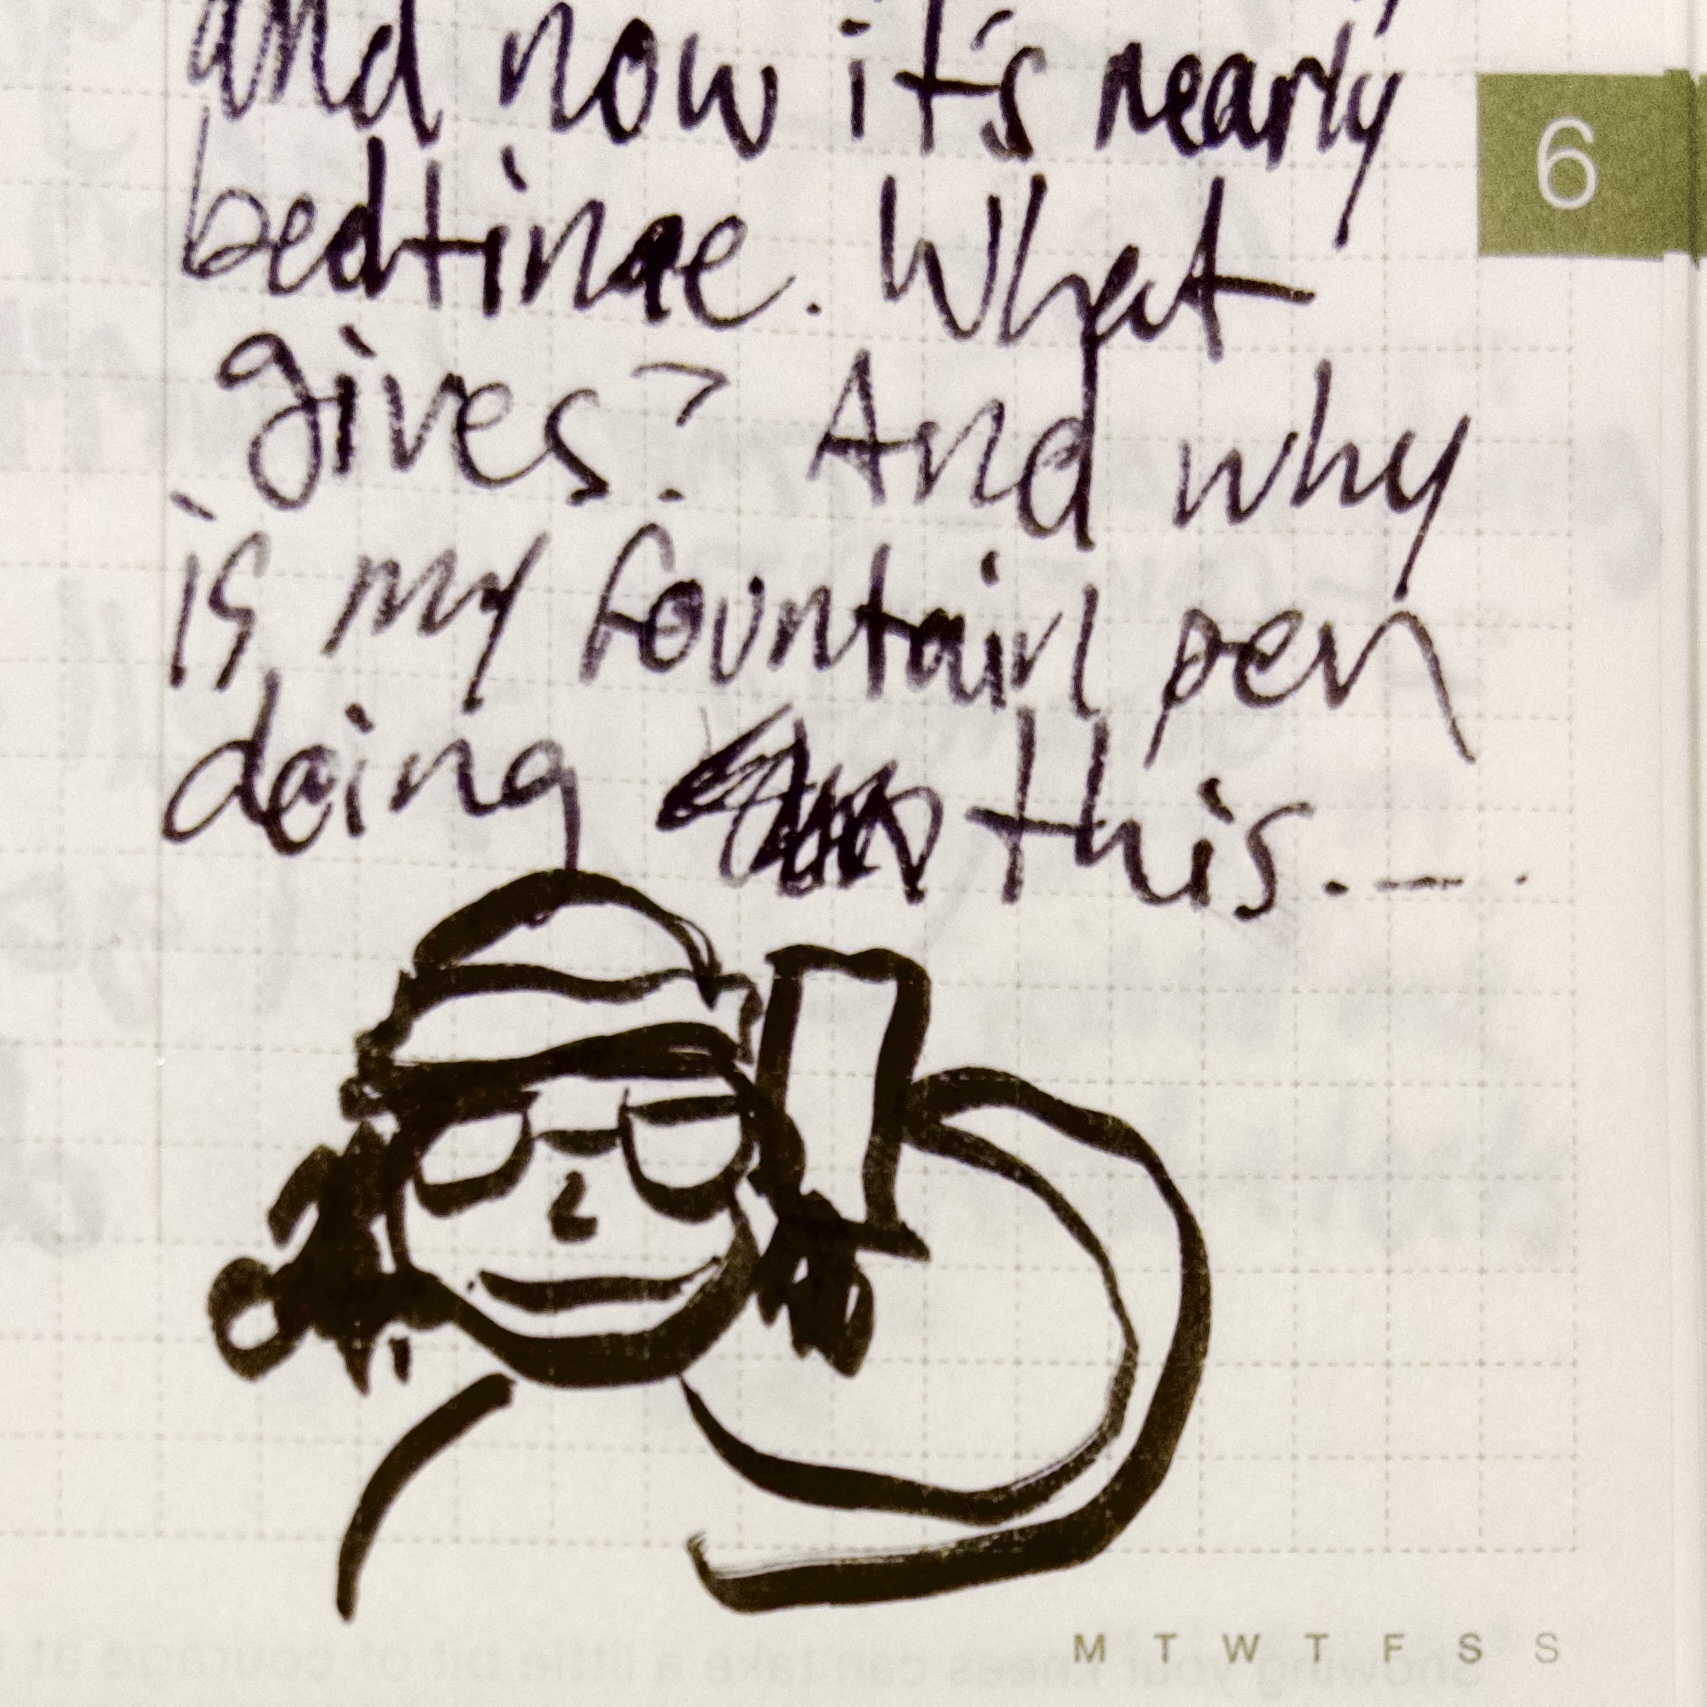 and now it's nearly
6
bedtime. What
gives? And why
is my fountain pen
doing this....
M T W T F S S